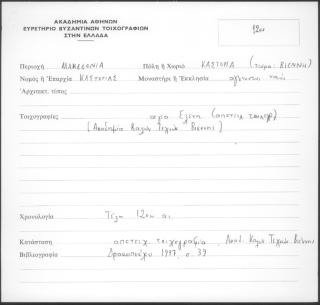 ΑΚΑΔΗΜΙΑ ΑΘΗΝΩΝ
ΕΥΡΕΤΗΡΙΟ ΒΥΖΑΝΤΙΝΩΝ ΤΟΙΧΟΓΡΑΦΙΩΝ
ΣΤΗΝ ΕΛΛΑΔΑ
12ου
Περιοχή ΜΑΚΕΔΟΝΙΑ Πόλη ή Χωριό ΚΑΣΤΟΡΙΑ (τώρα: ΒΙΕΝΝΗ)
Νομός ή Ἐπαρχία ΚΑΣΤΟΡΙΑΣ Μοναστήρι ή Ἐκκλησία ναός
Ἀρχιτεκτ. τύπος
Τοιχογραφίες αγία Ελένη (αποτειχ. τοιχογρ)
[Ακαδημία Καλών Τεχνών Βιέννης]
Χρονολογία Τέλη 12ου αι.
Κατάσταση αποτειχ. τοιχογραφία, Ακαδ. Καλών Τεχνών Βιέννης
Βιβλιογραφία Δρακοπούλου 1997, σ. 39